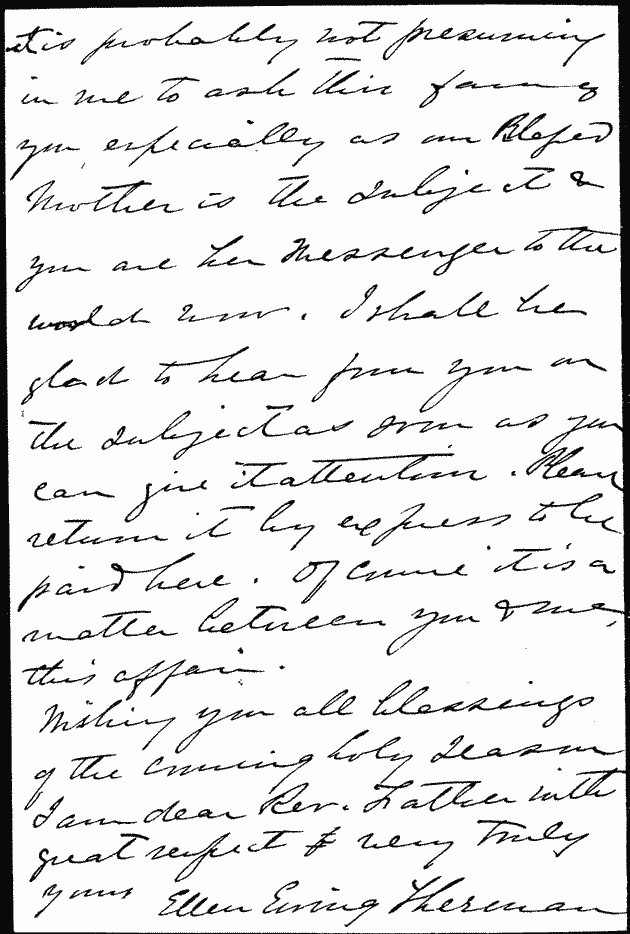 it is probably not presuming
in me to ask this favor of
you, especially as our Blessed
Mother is the subject &
you are her Messenger to the
world now. I shall be
glad to hear from you on
the subject as soon as you
can give it attention. Please
return it by express to be
paid here. Of course it is a
matter between you & me,
this affair.
Wishing you all blessings
of the coming holy season
I am dear Rev. Father with
great respect & very truly
yours Ellen Ewing Sherman